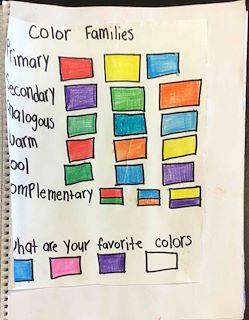 Color Families
Primary
Secondary
Analogous
Warm
Cool
Complementary
What are your favorite colors